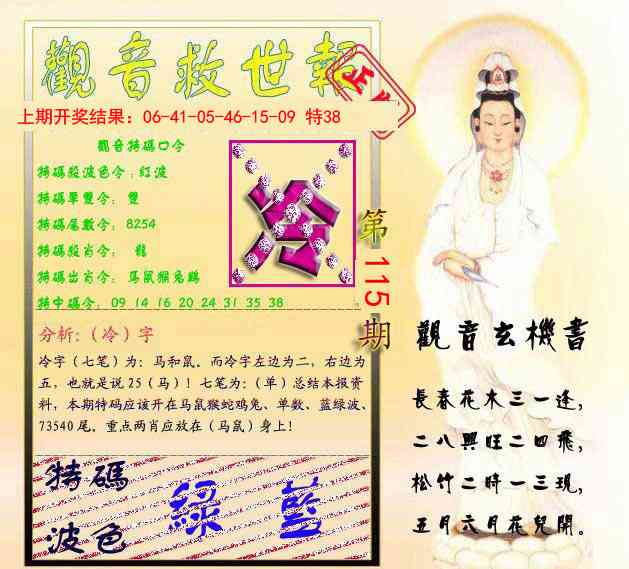 觀音救世報
上期开奖结果：06-41-05-46-15-09 特38
觀音特碼口令
特碼殺波色令：紅波
特碼單雙令： 雙
特碼尾數令：8254
特碼殺肖令： 龍
特碼出肖令：馬鼠猴兔鷄
特中碼令：09 14 16 20 24 31 35 38
冷
第115期
分析:（冷）字
冷字（七笔）为：马和鼠。而冷字左边为二，右边为
五，也就是说25（马）！七笔为：（单）总结本报资
料，本期特码应该开在马鼠猴蛇鸡兔、单数、蓝绿波、
73540尾。重点两肖应放在（马鼠）身上！
特碼
波色
綠 藍
觀音玄機書
長春花木三一逢，
二八興旺二四飛，
松竹二時一三現，
五月六月花兒開。